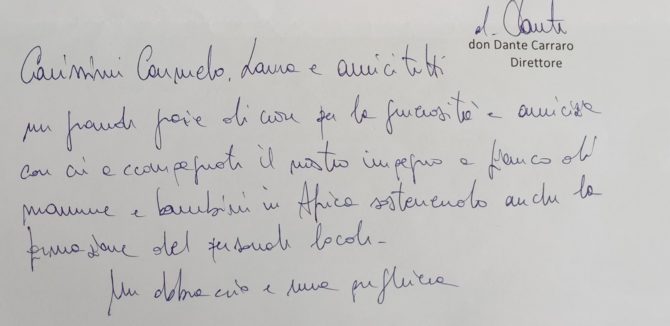 d. Dante
don Dante Carraro
Direttore
Carissimi Carmelo, Laura e amici tutti
un grande grazie di cuore per la generosità e amicizia
con cui accompagnate il nostro impegno a fianco di
mamme e bambini in Africa sostenendo anche la
formazione del personale locale -
Un abbraccio e una preghiera